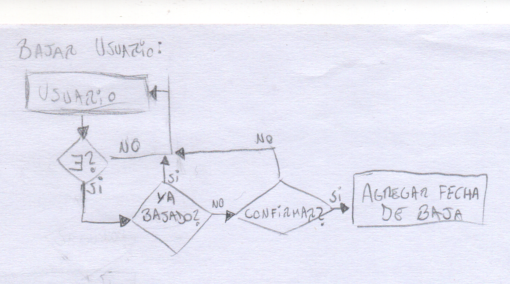 BAJAR USUARIO:
USUARIO
∃?
NO
Si
YA
BAJADO?
Si
NO
CONFIRMAR?
NO
Si
AGREGAR FECHA
DE BAJA